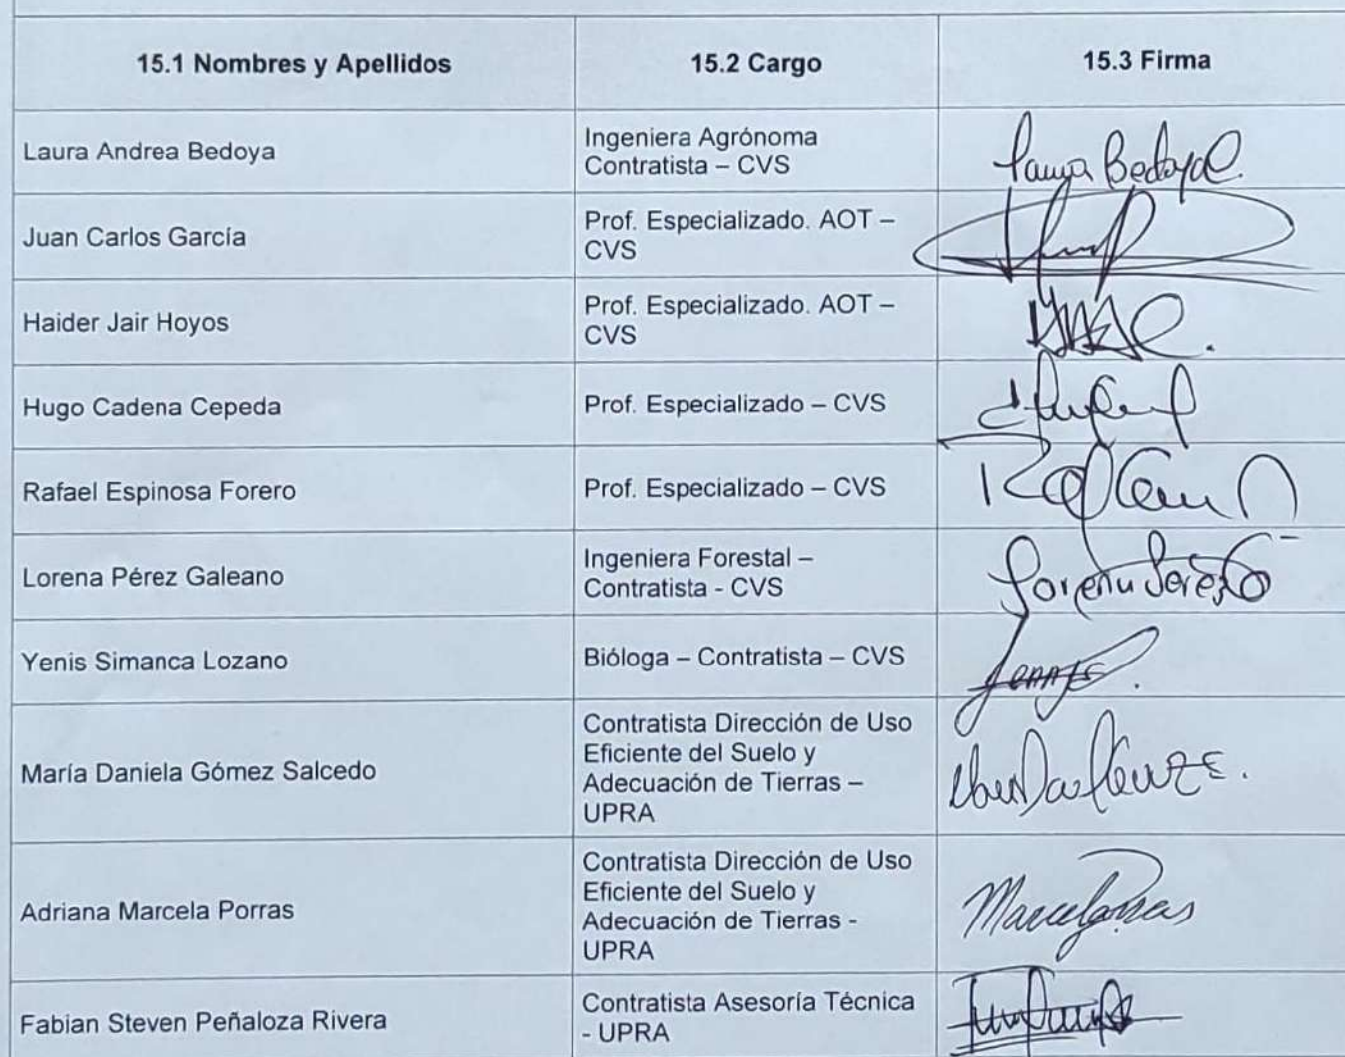 15.1 Nombres y Apellidos
15.2 Cargo
15.3 Firma
Laura Andrea Bedoya
Ingeniera Agrónoma
Contratista – CVS
Juan Carlos García
Prof. Especializado. AOT –
CVS
Haider Jair Hoyos
Prof. Especializado. AOT –
CVS
Hugo Cadena Cepeda
Prof. Especializado – CVS
Rafael Espinosa Forero
Prof. Especializado – CVS
Lorena Pérez Galeano
Ingeniera Forestal –
Contratista - CVS
Yenis Simanca Lozano
Bióloga – Contratista – CVS
María Daniela Gómez Salcedo
Contratista Dirección de Uso
Eficiente del Suelo y
Adecuación de Tierras –
UPRA
Adriana Marcela Porras
Contratista Dirección de Uso
Eficiente del Suelo y
Adecuación de Tierras -
UPRA
Fabian Steven Peñaloza Rivera
Contratista Asesoría Técnica
- UPRA